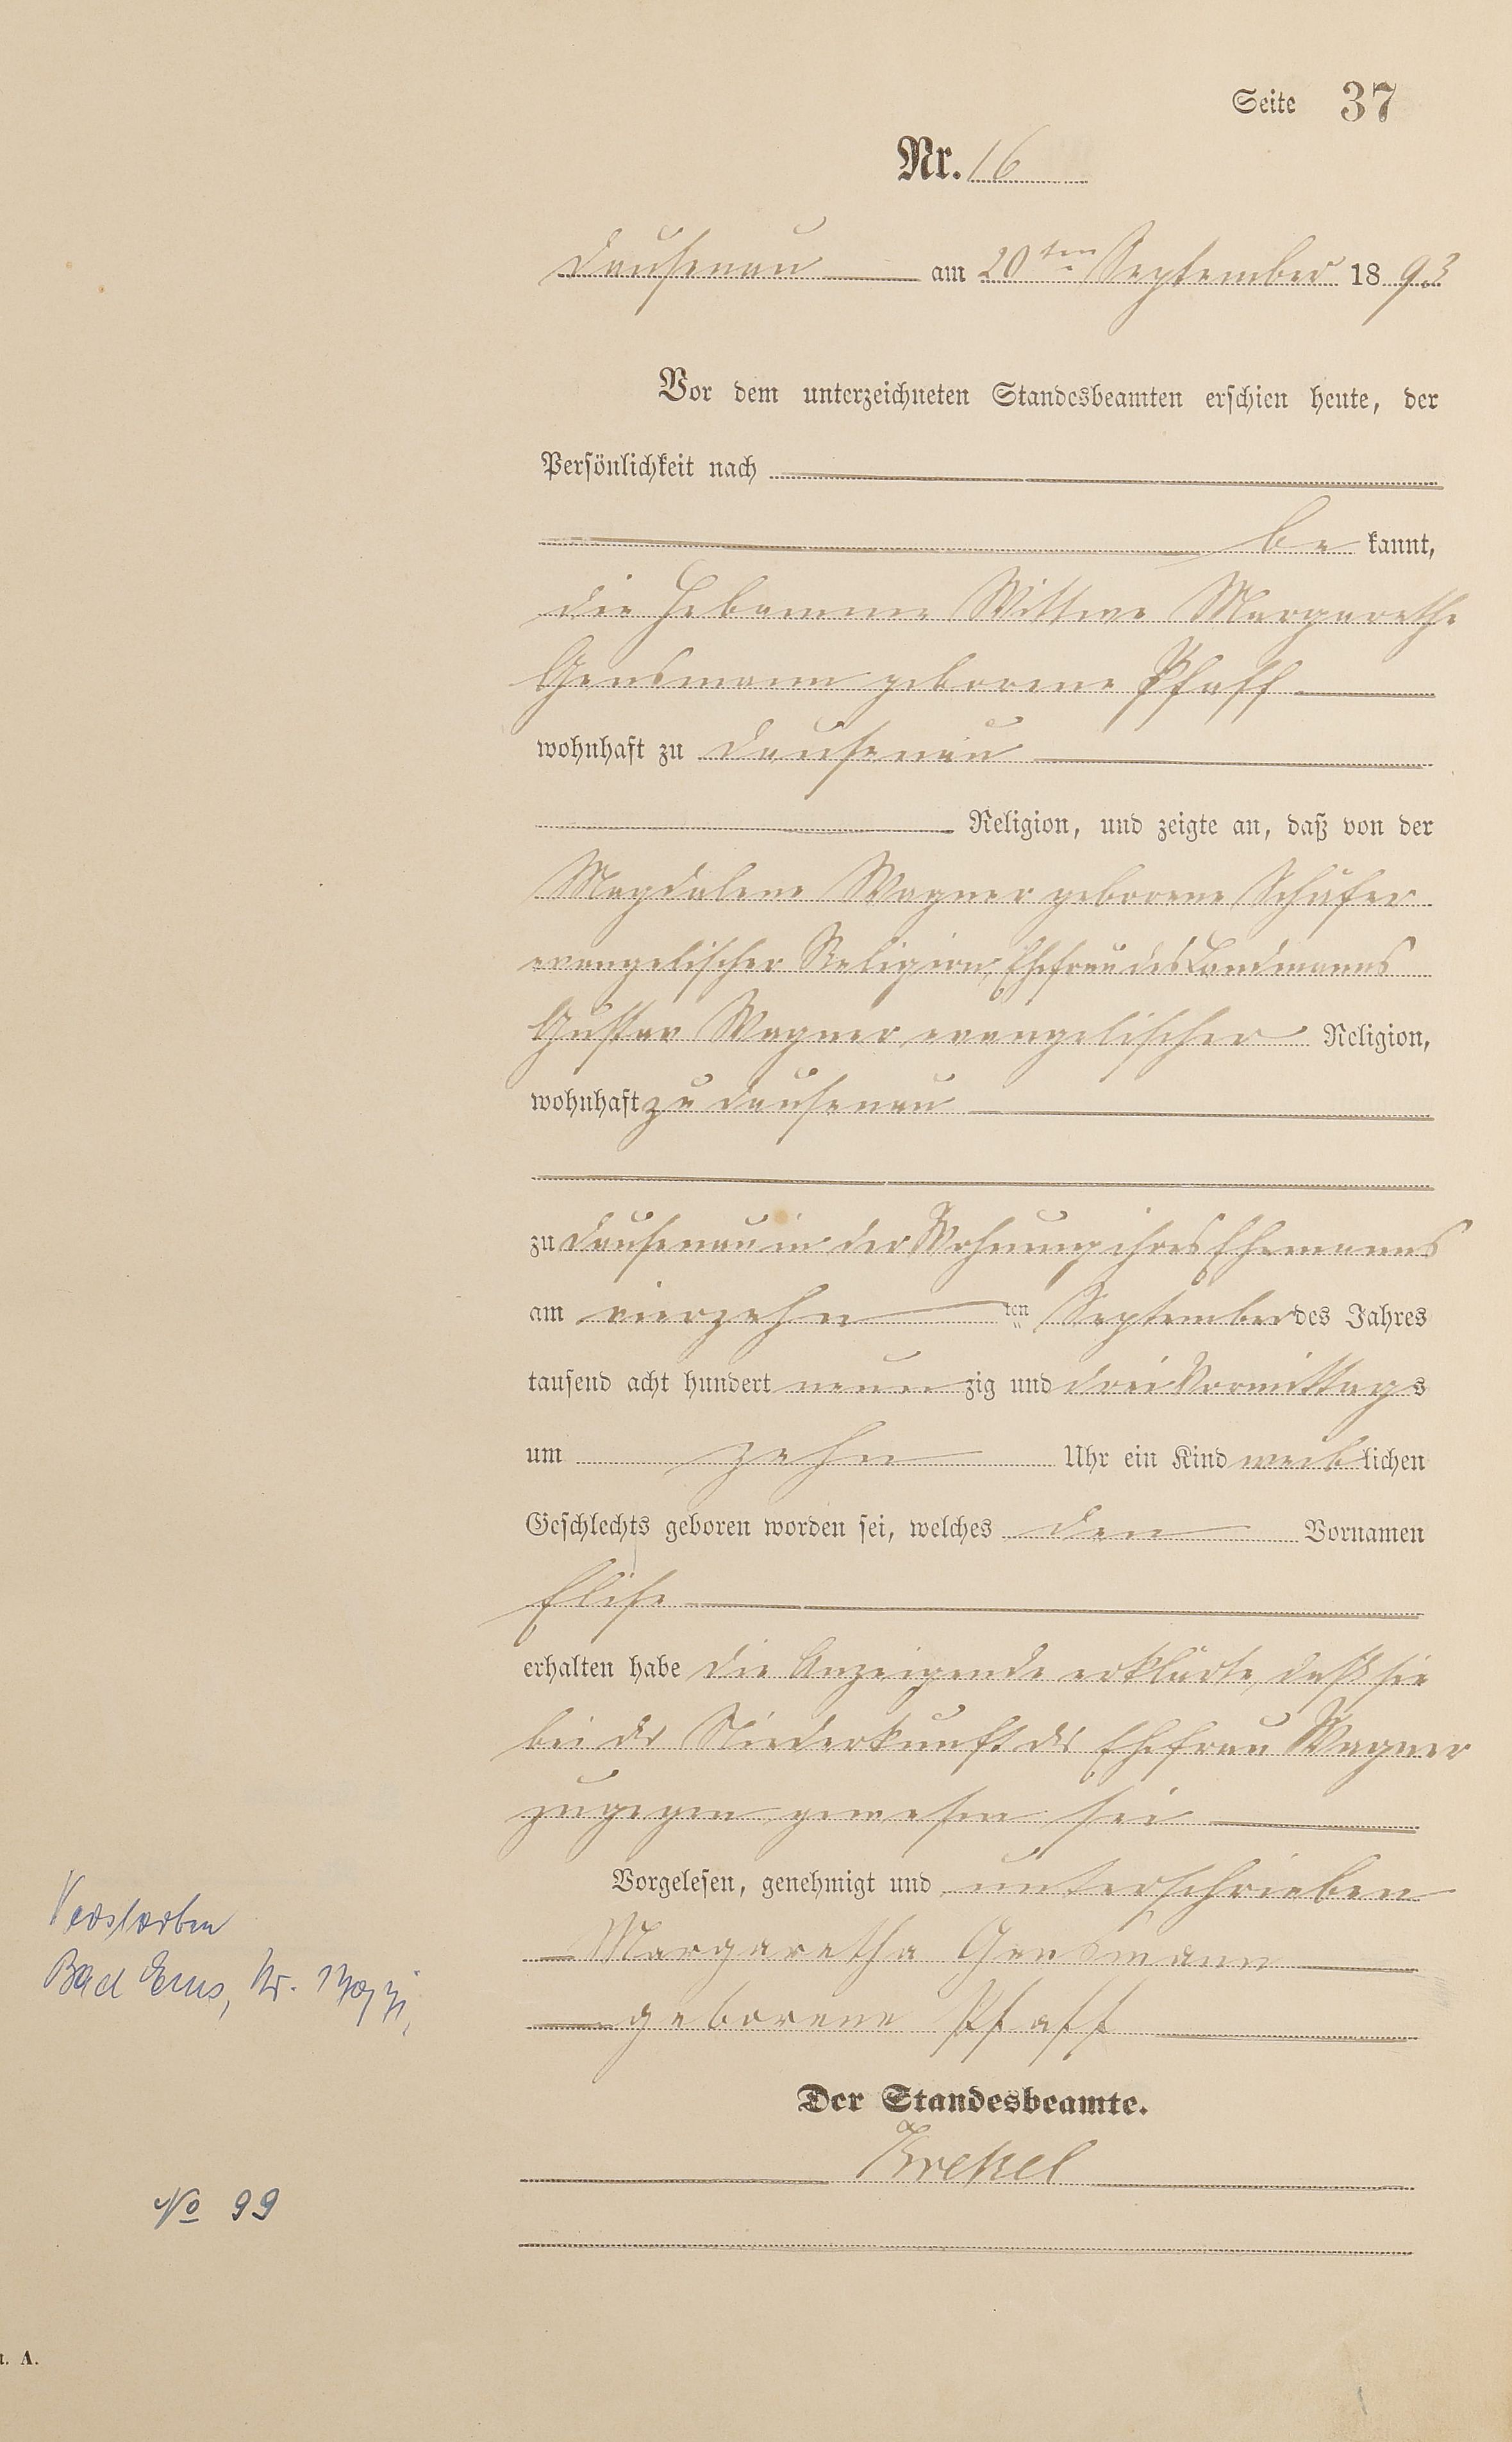 Seite 37
Nr. 16
Dausenau am 20ten September 1893
Vor dem unterzeichneten Standesbeamten erschien heute, der
Persönlichkeit nach
bekannt,
die Hebamme Wittwe Margarethe
Gensmann geborene Pfaff
wohnhaft zu Dausenau
Religion, und zeigte an, daß von der
Magdalene Wagner geborene Schäfer
evangelischer Religion, Ehefrau des Landmanns
Gustav Wagner, evangelischer Religion,
wohnhaft zu Dausenau
zu Dausenau in der Wohnung ihres Ehemanns
am vierzehnten September des Jahres
tausend acht hundert neunzig und drei Vormittags
um zehn Uhr ein Kind weiblichen
Geschlechts geboren worden sei, welches den Vornamen
Elise
erhalten habe die Anzeigende erklärte, daß sie
bei der Niederkunft der Ehefrau Wagner
zugegen gewesen sei
Vorgelesen, genehmigt und unterschrieben
Margaretha Gensmann
geborene Pfaff
Der Standesbeamte.
Verstorben
Bad Ems, Nr.
No 99
A.